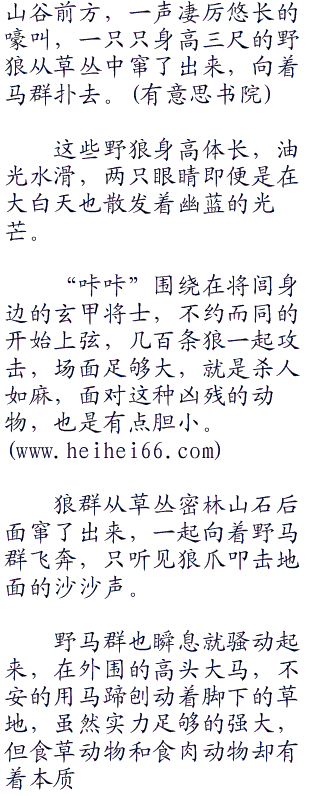 山谷前方，一声凄厉悠长的
嚎叫，一只只身高三尺的野
狼从草丛中窜了出来，向着
马群扑去。(有意思书院)
这些野狼身高体长，油
光水滑，两只眼睛即便是在
大白天也散发着幽蓝的光
芒。
“咔咔”围绕在将闾身
边的玄甲将士，不约而同的
开始上弦，几百条狼一起攻
击，场面足够大，就是杀人
如麻，面对这种凶残的动
物，也是有点胆小。
(www.heihei66.com)
狼群从草丛密林山石后
面窜了出来，一起向着野马
群飞奔，只听见狼爪叩击地
面的沙沙声。
野马群也瞬息就骚动起
来，在外围的高头大马，不
安的用马蹄刨动着脚下的草
地，虽然实力足够的强大，
但食草动物和食肉动物却有
着本质